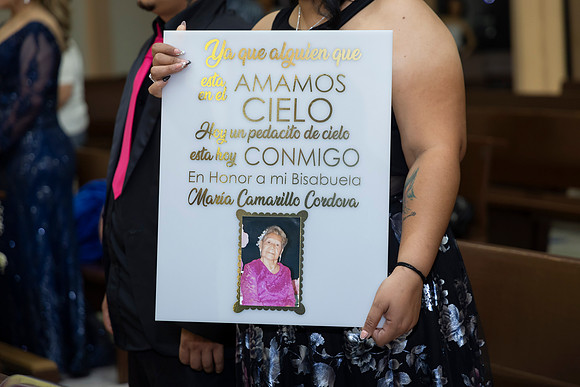 Ya que alguien que
esta en el AMAMOS
CIELO
Hay un pedacito de cielo
esta hoy CONMIGO
En Honor a mi Bisabuela
María Camarillo Cordova